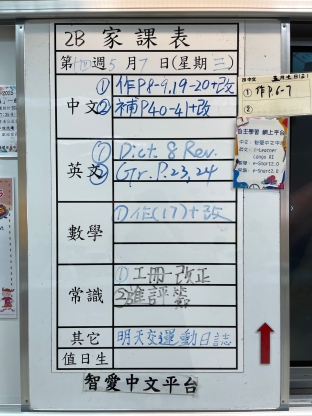 2B 家課表
第十四週 5月7日(星期三)
中文
① 作P8-9,19-20+改
② 補P40-41+改
英文
① Dict. 8 Rev.
② Gr. P.23, 24
數學
① 作(17)+改
常識
① 工冊-改正
其它
明天交運動日誌
值日生
智愛中文平台
① 作P.6-7
②
自主學習 網上平台